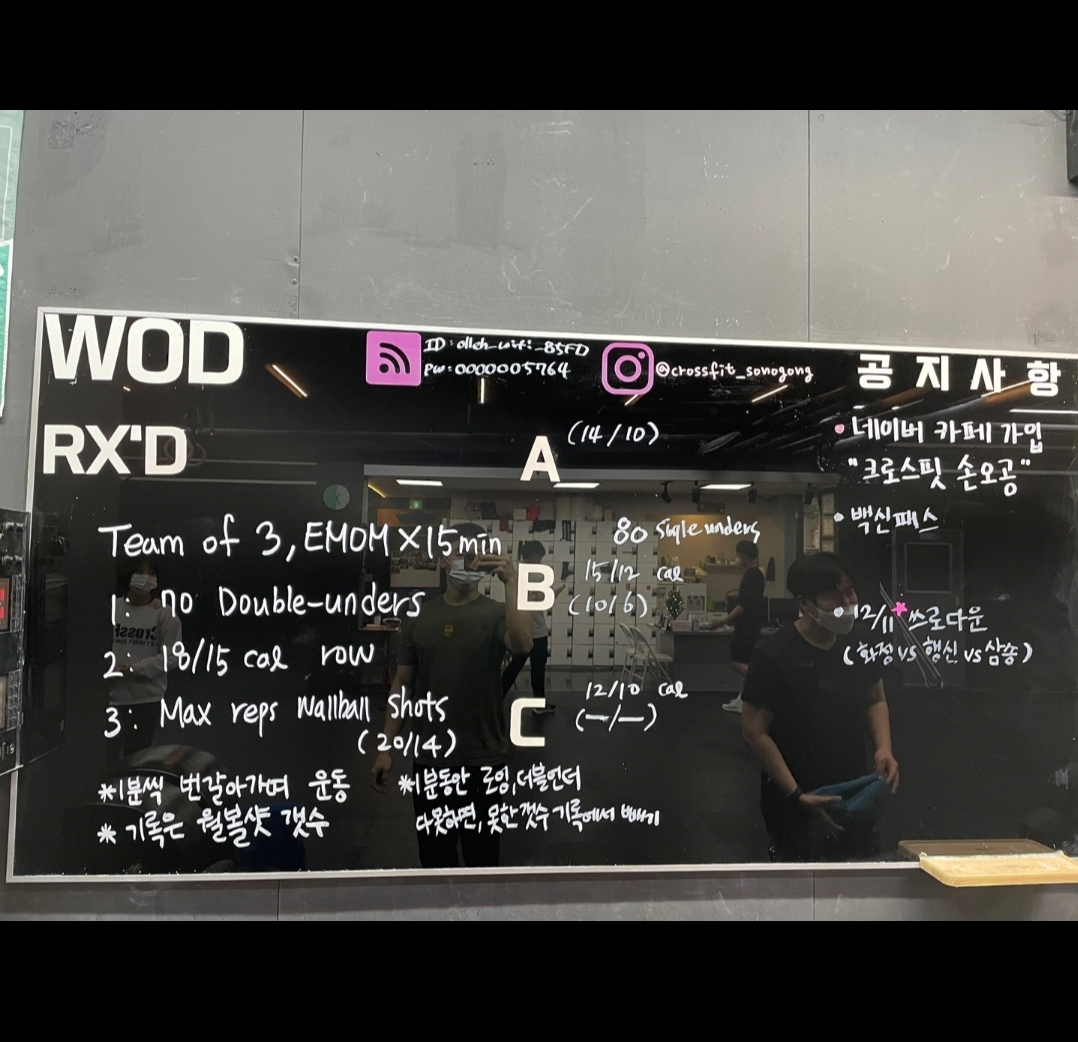 WOD
ID: olleh_wifi_B5FD
PW: 0000005764
@crossfit_sonogong
공지사항
RX'D
A (14/10)
• 네이버 카페 가입
"크로스핏 손오공"
• 백신패스
Team of 3, EMOM X 15min
80 Sigle unders
B 15/12 cal
(10/6)
1: 70 Double-unders
• 12/11* 쓰로다운
(화정 vs 행신 vs 삼송)
2: 18/15 cal row
3: Max reps Wallball Shots
(20/14)
C 12/10 cal
(—/—)
*1분씩 번갈아가며 운동
* 기록은 월볼샷 갯수
*1분동안 로잉,더블언더
다못하면, 못한갯수 기록에서 빼기